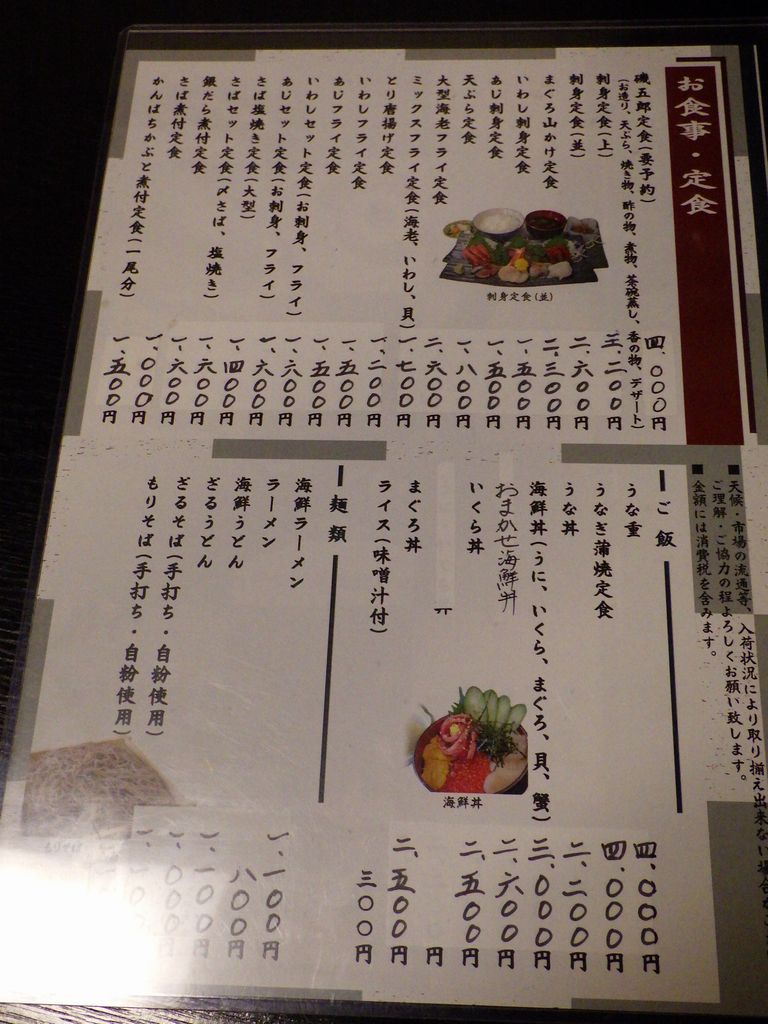 お食事・定食
磯五郎定食(要予約) 四、〇〇〇円
(お造り、天ぷら、焼き物、酢の物、煮物、茶碗蒸し、香の物、デザート)
刺身定食(上) 三、二〇〇円
刺身定食(並) 二、六〇〇円
まぐろ山かけ定食 二、三〇〇円
いわし刺身定食 一、五〇〇円
あじ刺身定食 一、五〇〇円
天ぷら定食 一、八〇〇円
大型海老フライ定食 二、六〇〇円
ミックスフライ定食(海老、いわし、貝) 一、七〇〇円
とり唐揚げ定食 一、二〇〇円
いわしフライ定食 一、五〇〇円
あじフライ定食 一、五〇〇円
いわしセット定食(お刺身、フライ) 一、六〇〇円
あじセット定食(お刺身、フライ) 一、六〇〇円
さば塩焼き定食(大型) 一、四〇〇円
さばセット定食(〆さば、塩焼き) 一、六〇〇円
銀だら煮付定食 一、六〇〇円
さば煮付定食 一、〇〇〇円
かんぱちかぶと煮付定食(一尾分) 一、五〇〇円
刺身定食(並)
■天候・市場の流通等、入荷状況により取り揃え出来ない場合が
ご理解・ご協力の程よろしくお願い致します。
■金額には消費税を含みます。
ご飯
うな重 四、〇〇〇円
うなぎ蒲焼定食 四、〇〇〇円
うな丼 二、二〇〇円
海鮮丼(うに、いくら、まぐろ、貝、蟹) 三、〇〇〇円
おまかせ海鮮丼 二、六〇〇円
いくら丼 二、五〇〇円
円
まぐろ丼 二、五〇〇円
ライス(味噌汁付) 三〇〇円
海鮮丼
麺類
海鮮ラーメン 一、一〇〇円
ラーメン 八〇〇円
海鮮うどん 一、一〇〇円
ざるうどん 一、〇〇〇円
ざるそば(手打ち・自粉使用)
もりそば(手打ち・自粉使用)
もりそば